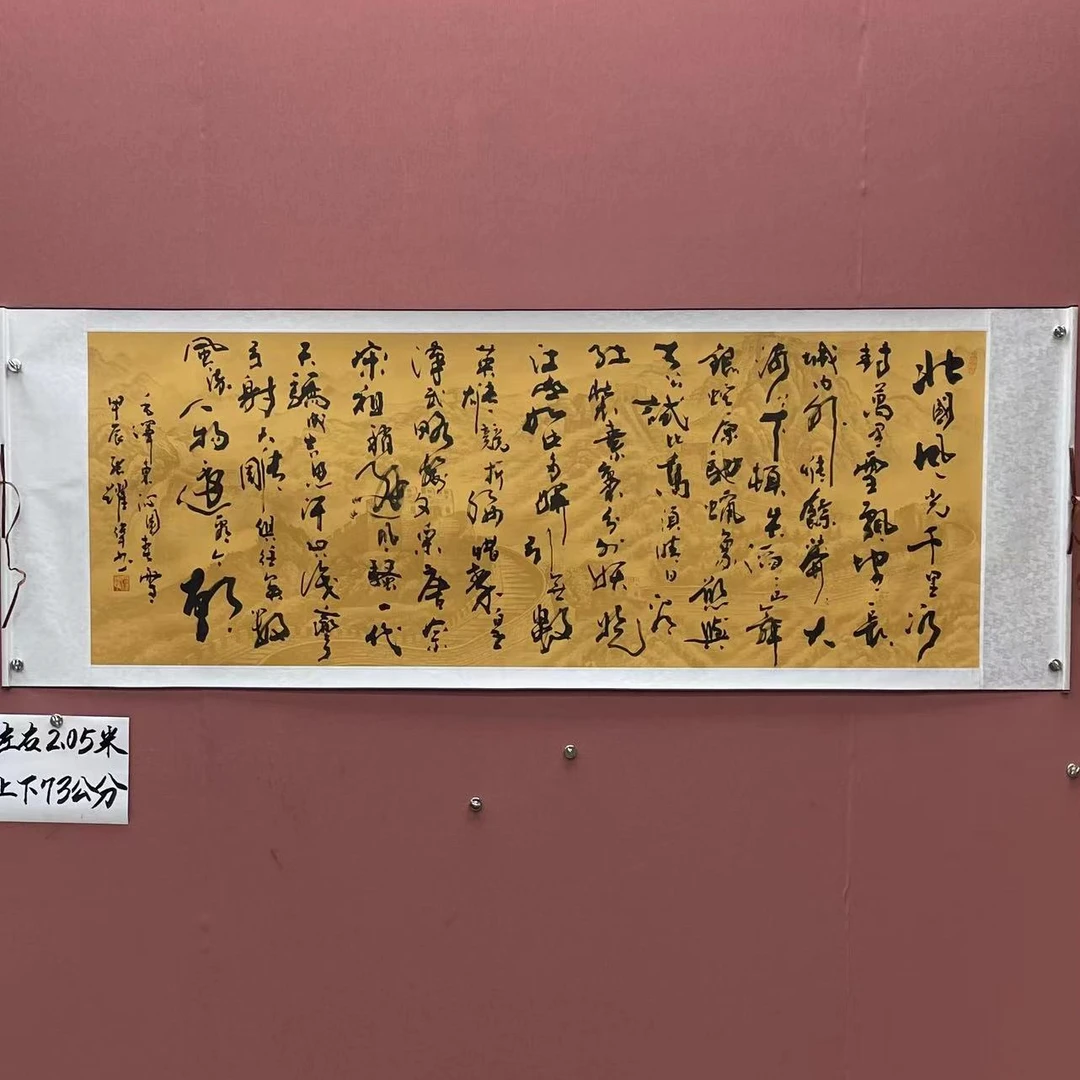 北國風光千里冰
封萬里雪飄望長
城內外惟餘莽々大
河上下頓失滔々山舞
銀蛇原馳蠟象欲與
天公試比高須晴日看
紅裝素裹分外妖嬈
江山如此多嬌引無數
英雄競折腰惜秦皇
漢武略輸文采唐宗
宋祖稍遜風騷一代
天驕成吉思汗只識彎
弓射大雕俱往矣數
風流人物還看今朝
毛澤東沁園春雪
甲辰
左右2.05米
上下73公分